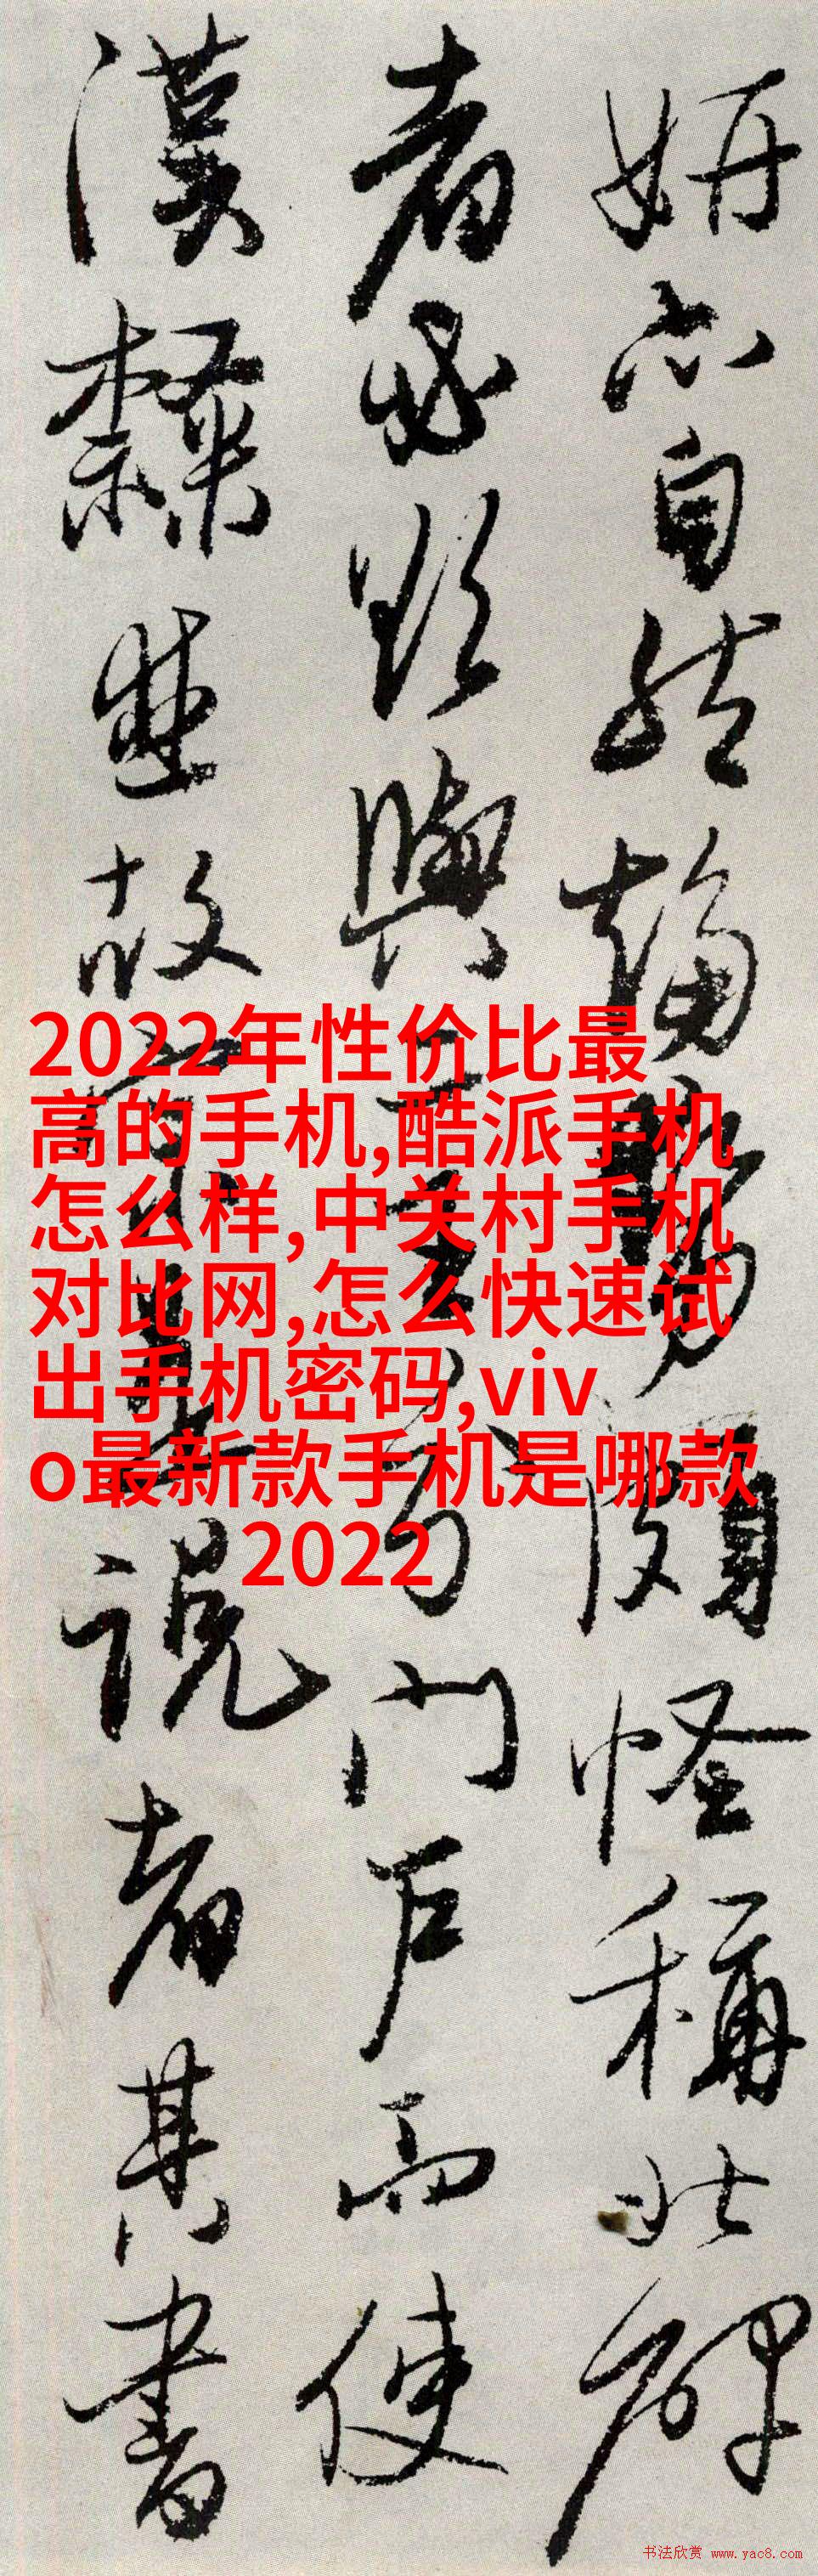 妍亦自然趋
頗怪稱北碑
者必
與
門户而使
漢隸
故
説者其書
2022年性价比最
高的手机,酷派手机
怎么样,中关村手机
对比网,怎么快速试
出手机密码,viv
o最新款手机是哪款
2022
书法欣赏 www.yac8.com